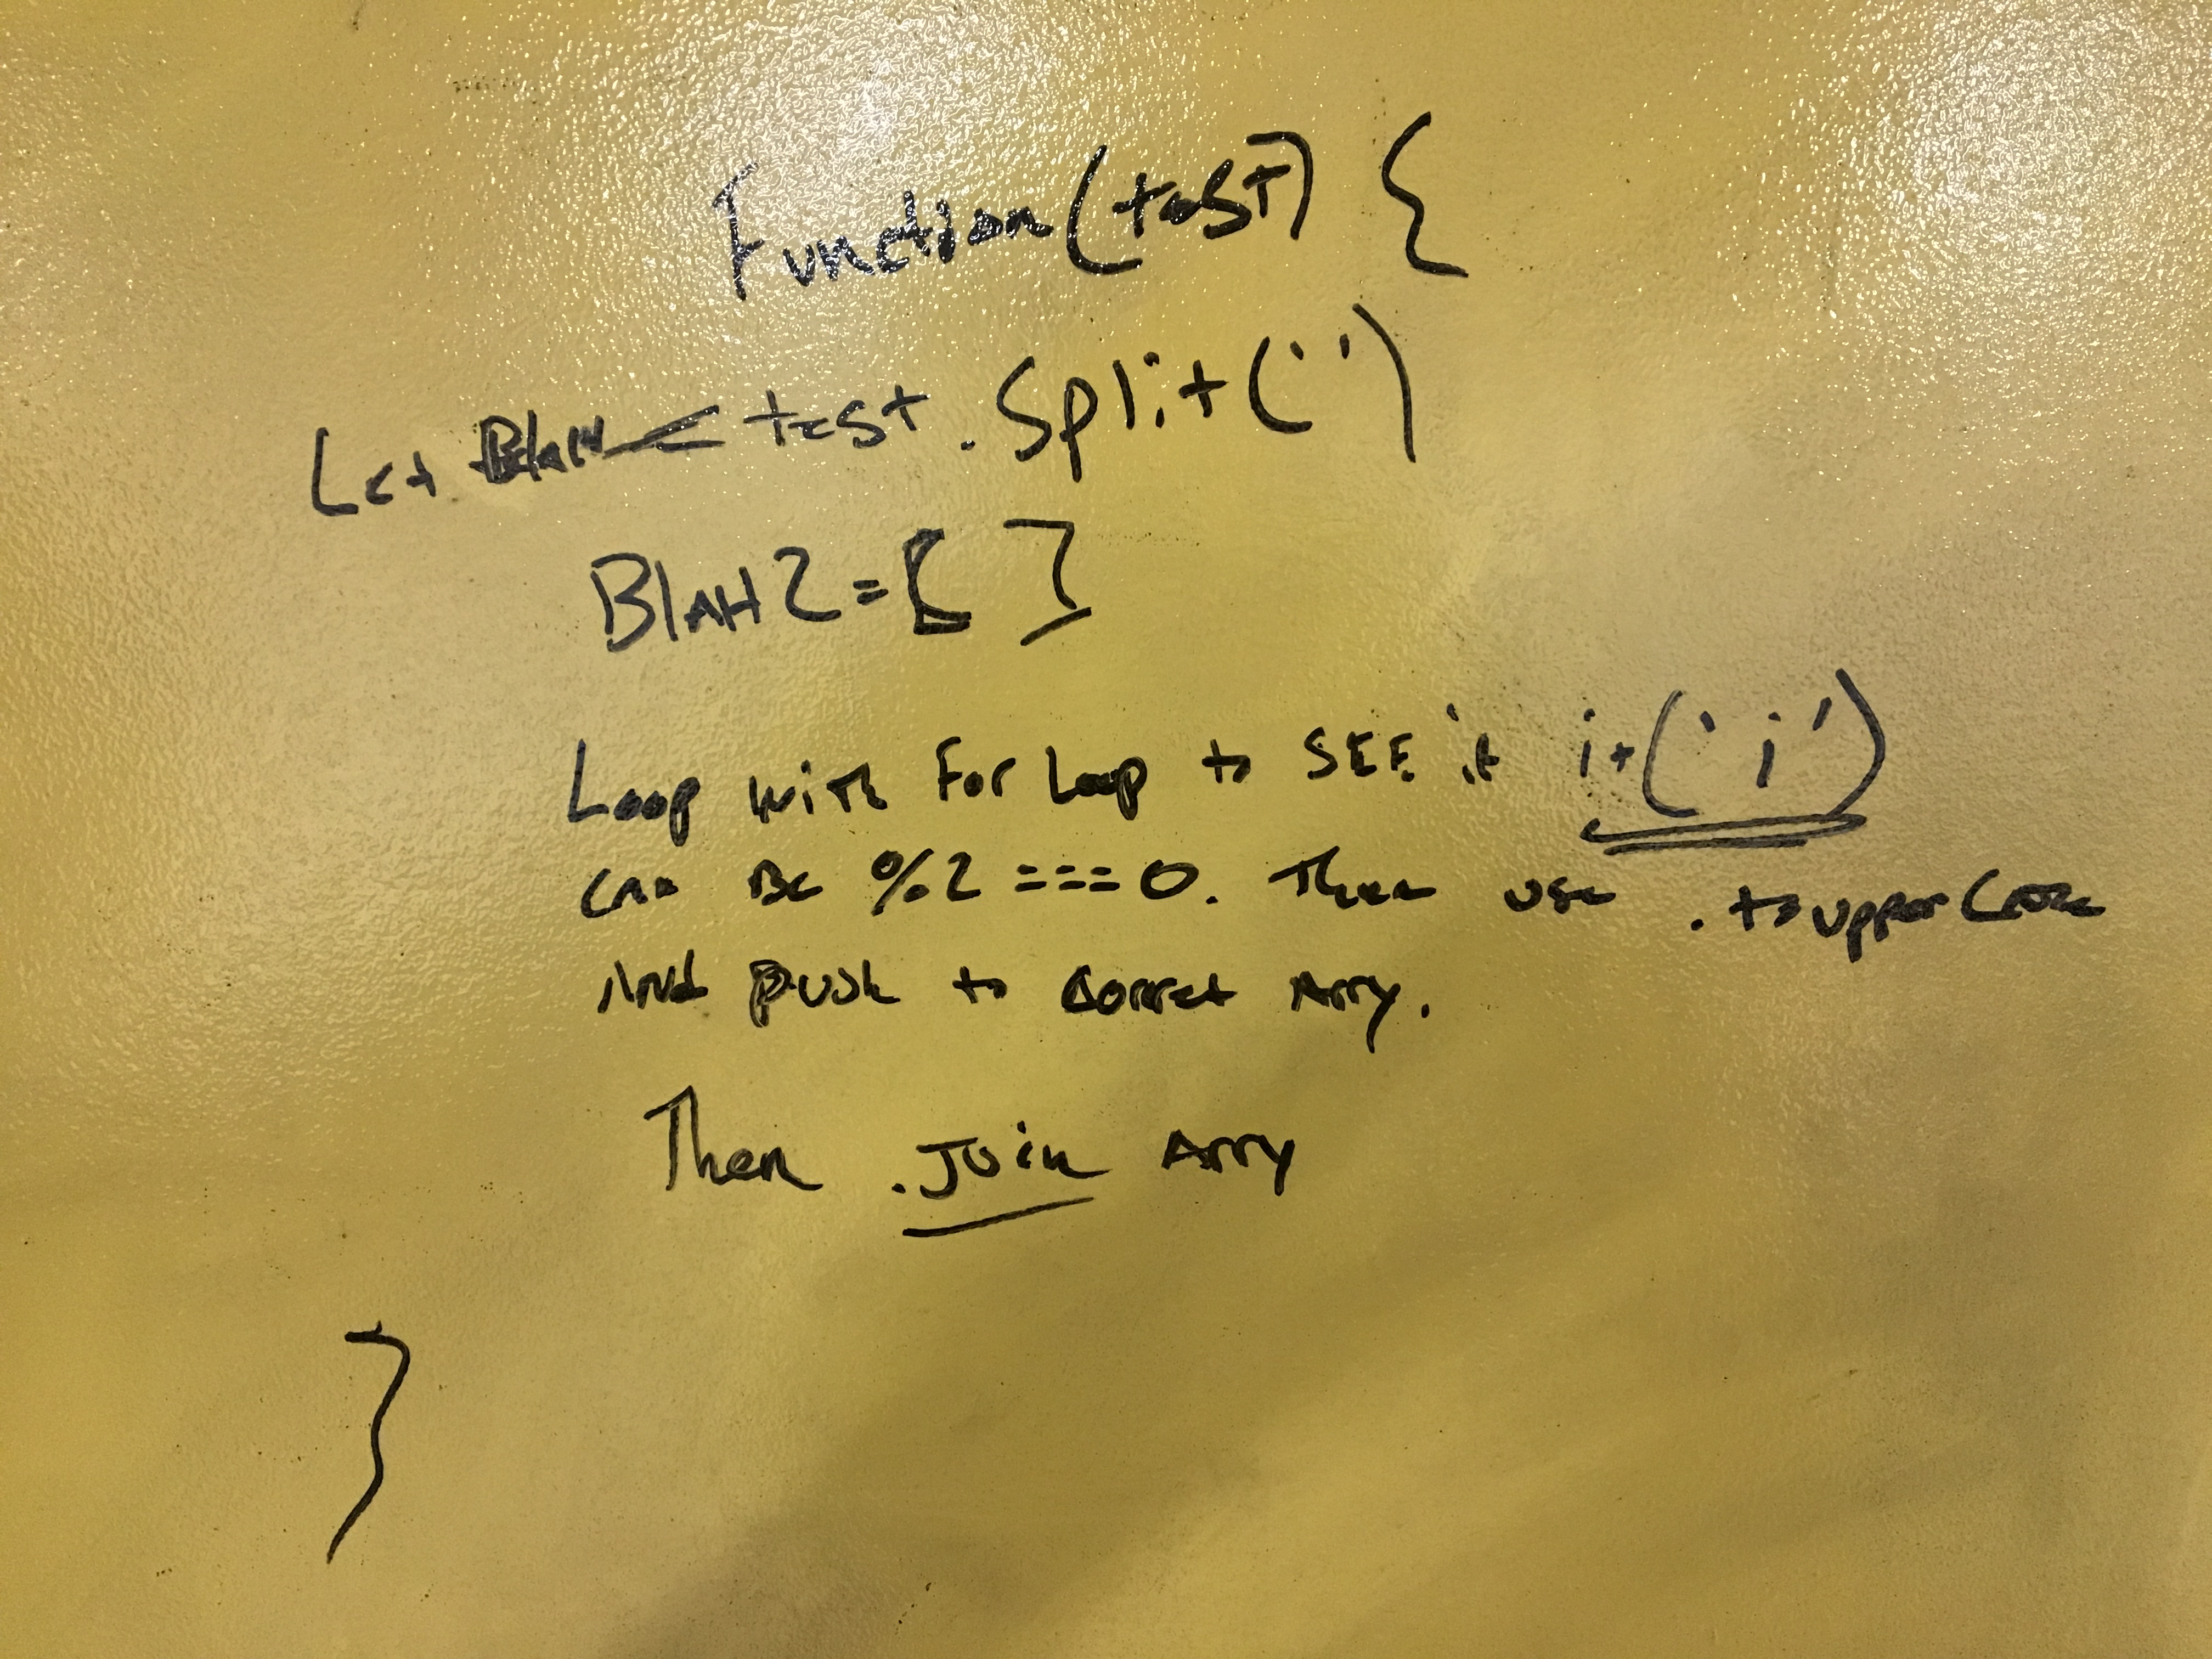 Function(test) {
Let Blah = test.Split('')
BlAH2 = [ ]
Loop with For Loop to SEE if i+('i')
can Be %2 === 0. Then use .toupperCase
And push to Correct Arry.
Then .Join Arry
}